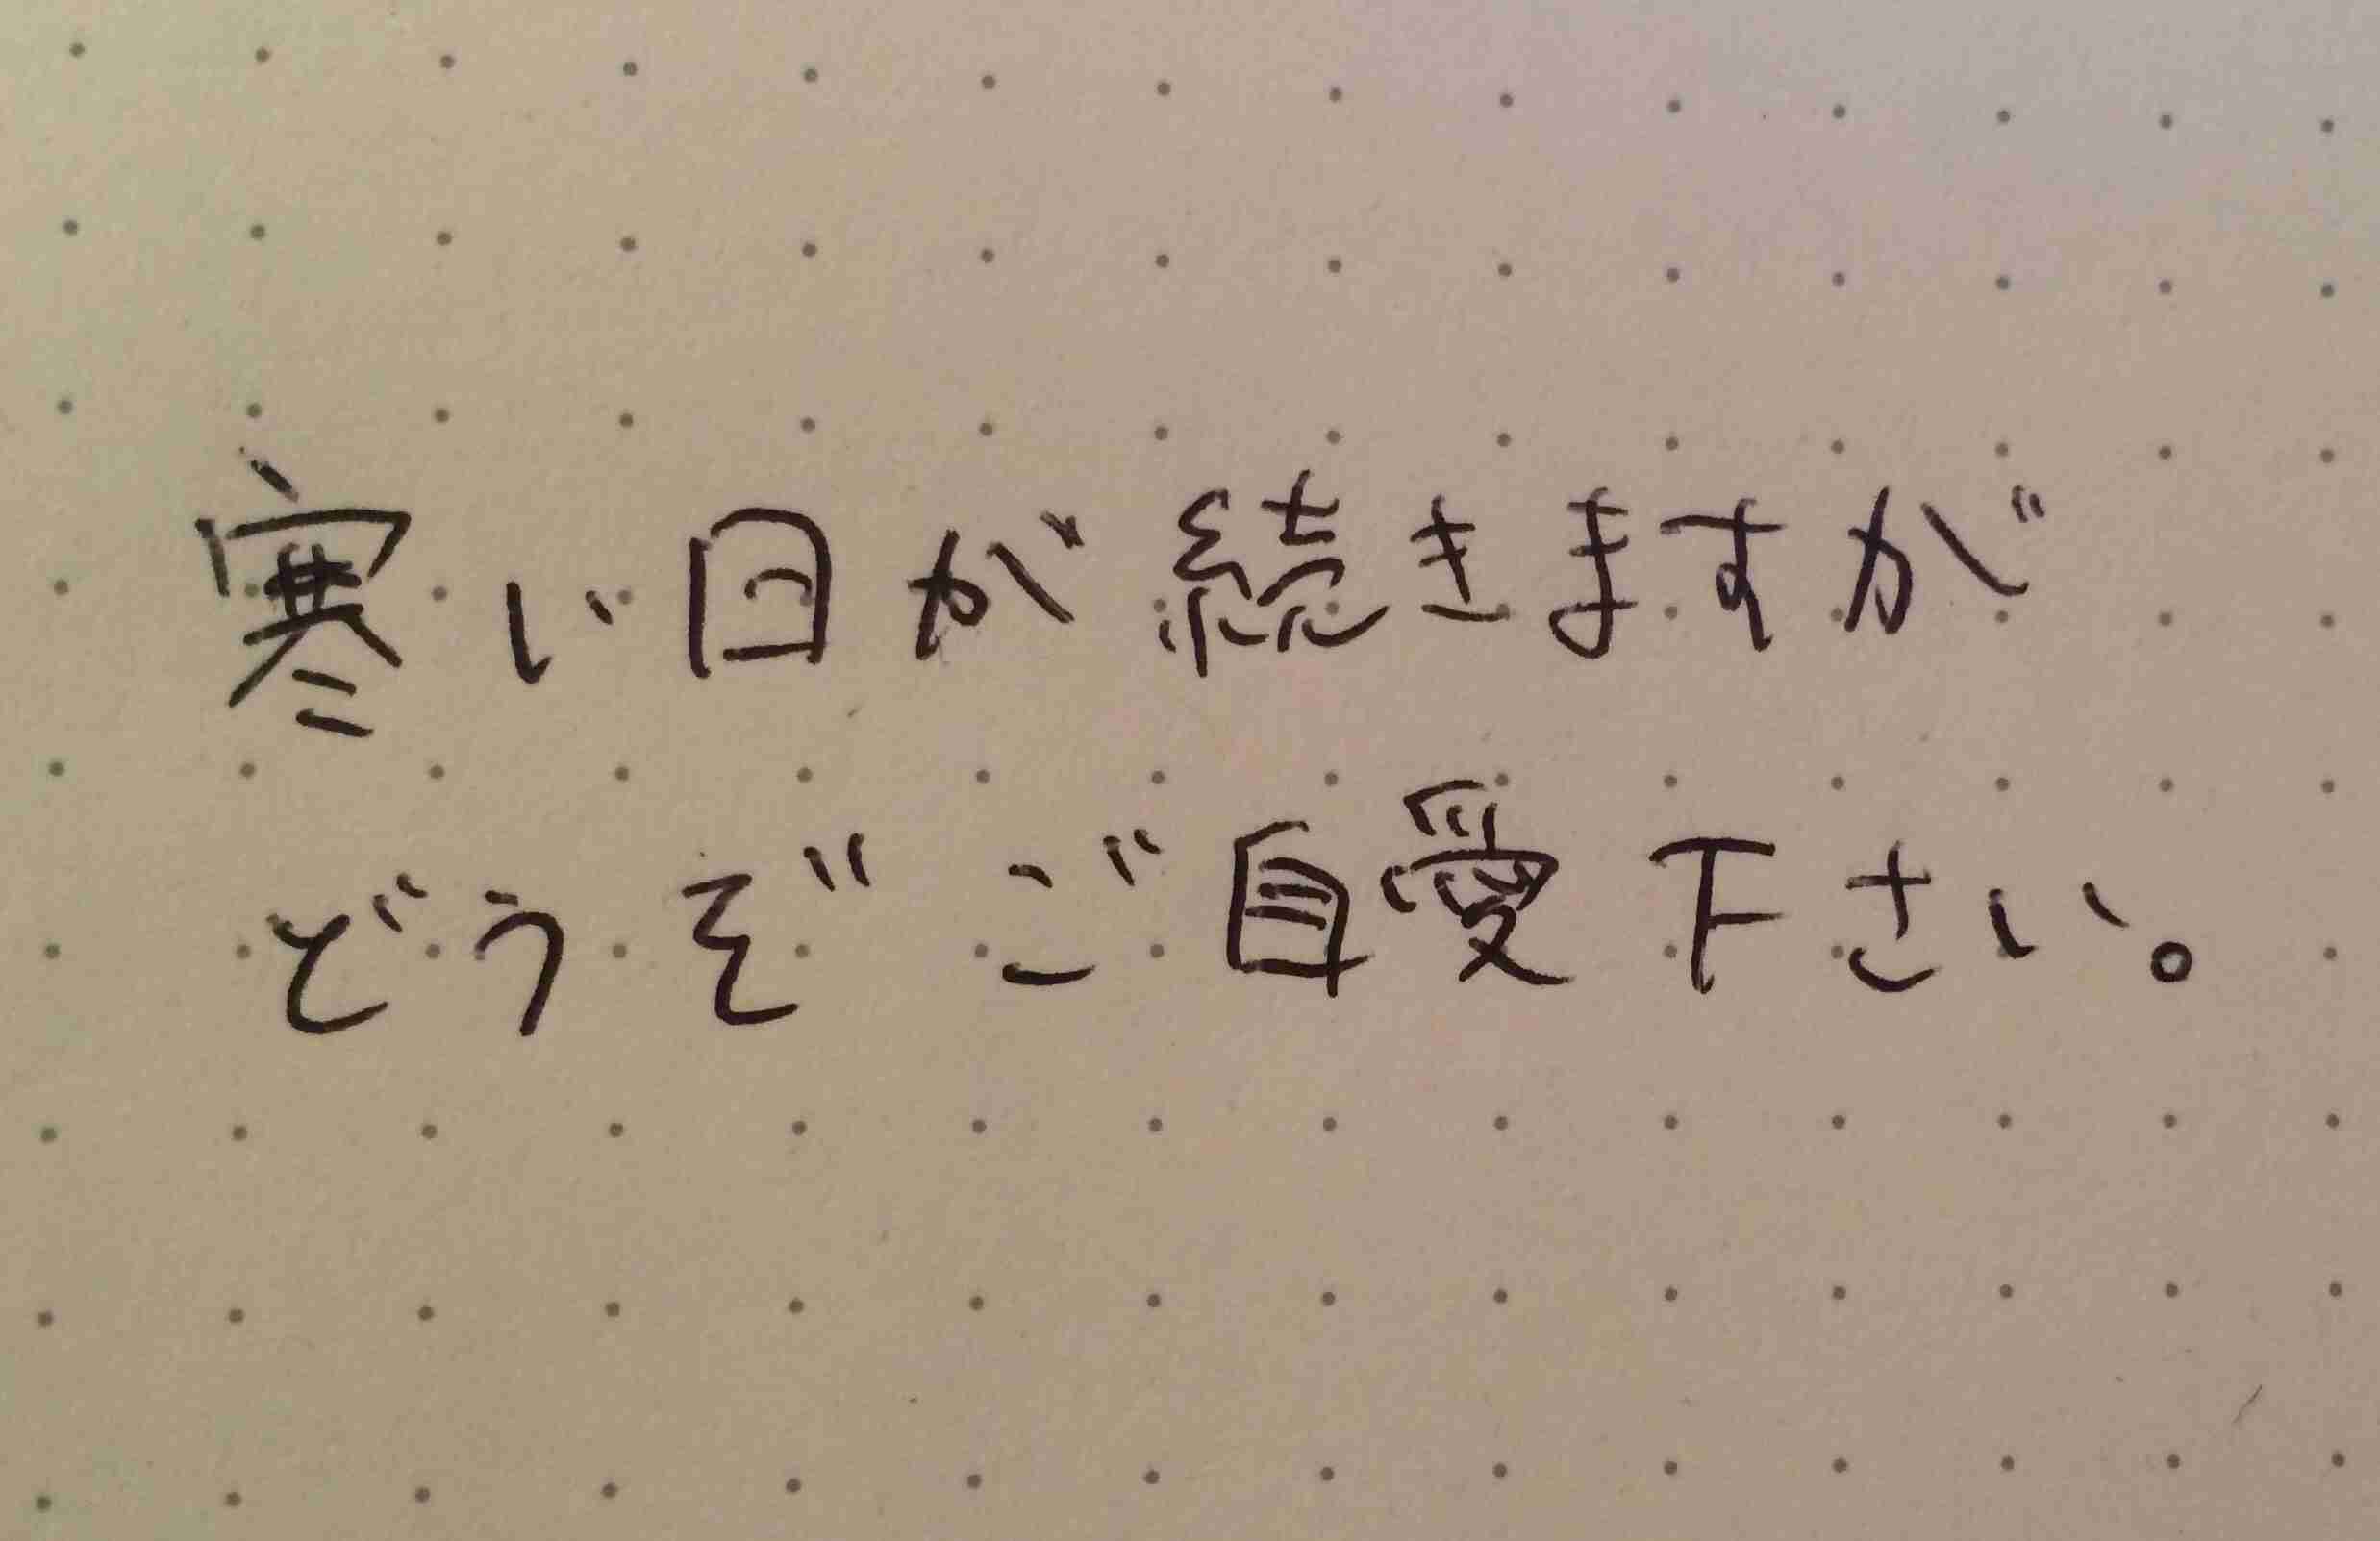 寒い日が続きますが
どうぞご自愛下さい。